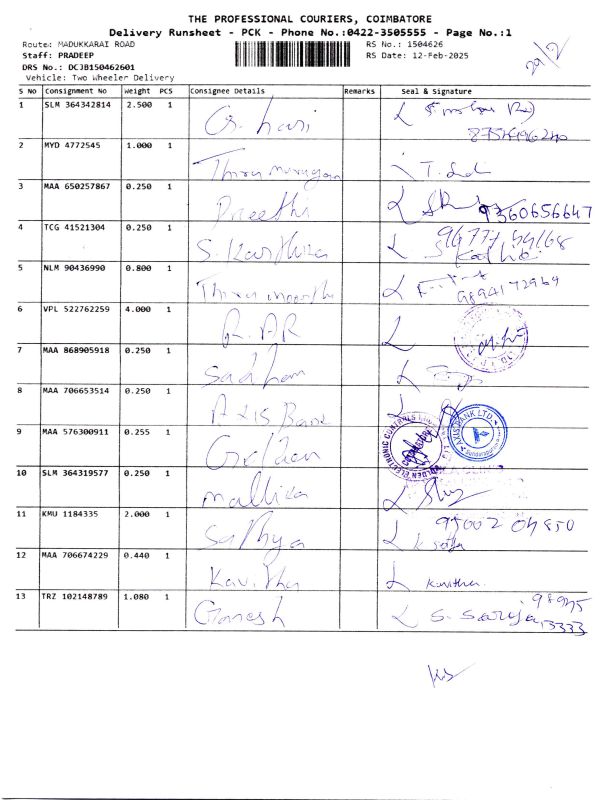 THE PROFESSIONAL COURIERS, COIMBATORE
Delivery Runsheet - PCK - Phone No.:0422-3505555 - Page No.:1
Route: MADUKKARAI ROAD RS No.: 1504626
Staff: PRADEEP RS Date: 12-Feb-2025
DRS No.: DCJB150462601
Vehicle: Two Wheeler Delivery
29/2
S No Consignment No Weight PCS Consignee Details Remarks Seal & Signature
1 SLM 364342814 2.500 1 G. hari
2 MYD 4772545 1.000 1 Thiru murugan
3 MAA 650257867 0.250 1 Preethi 9360656647
4 TCG 41521304 0.250 1 S. Karthika
5 NLM 90436990 0.800 1 Thiru moorthi 9894172969
6 VPL 522762259 4.000 1 R. AR
7 MAA 868905918 0.250 1 Sadham
8 MAA 706653514 0.250 1 Axis Bank AXIS BANK LTD.
9 MAA 576300911 0.255 1 Golden GOLDEN ELECTRONIC CONTROLS
10 SLM 364319577 0.250 1 Mallika
11 KMU 1184335 2.000 1 Sathya
12 MAA 706674229 0.440 1 Kavitha Kavitha
13 TRZ 102148789 1.080 1 Ganesh S. Sarija